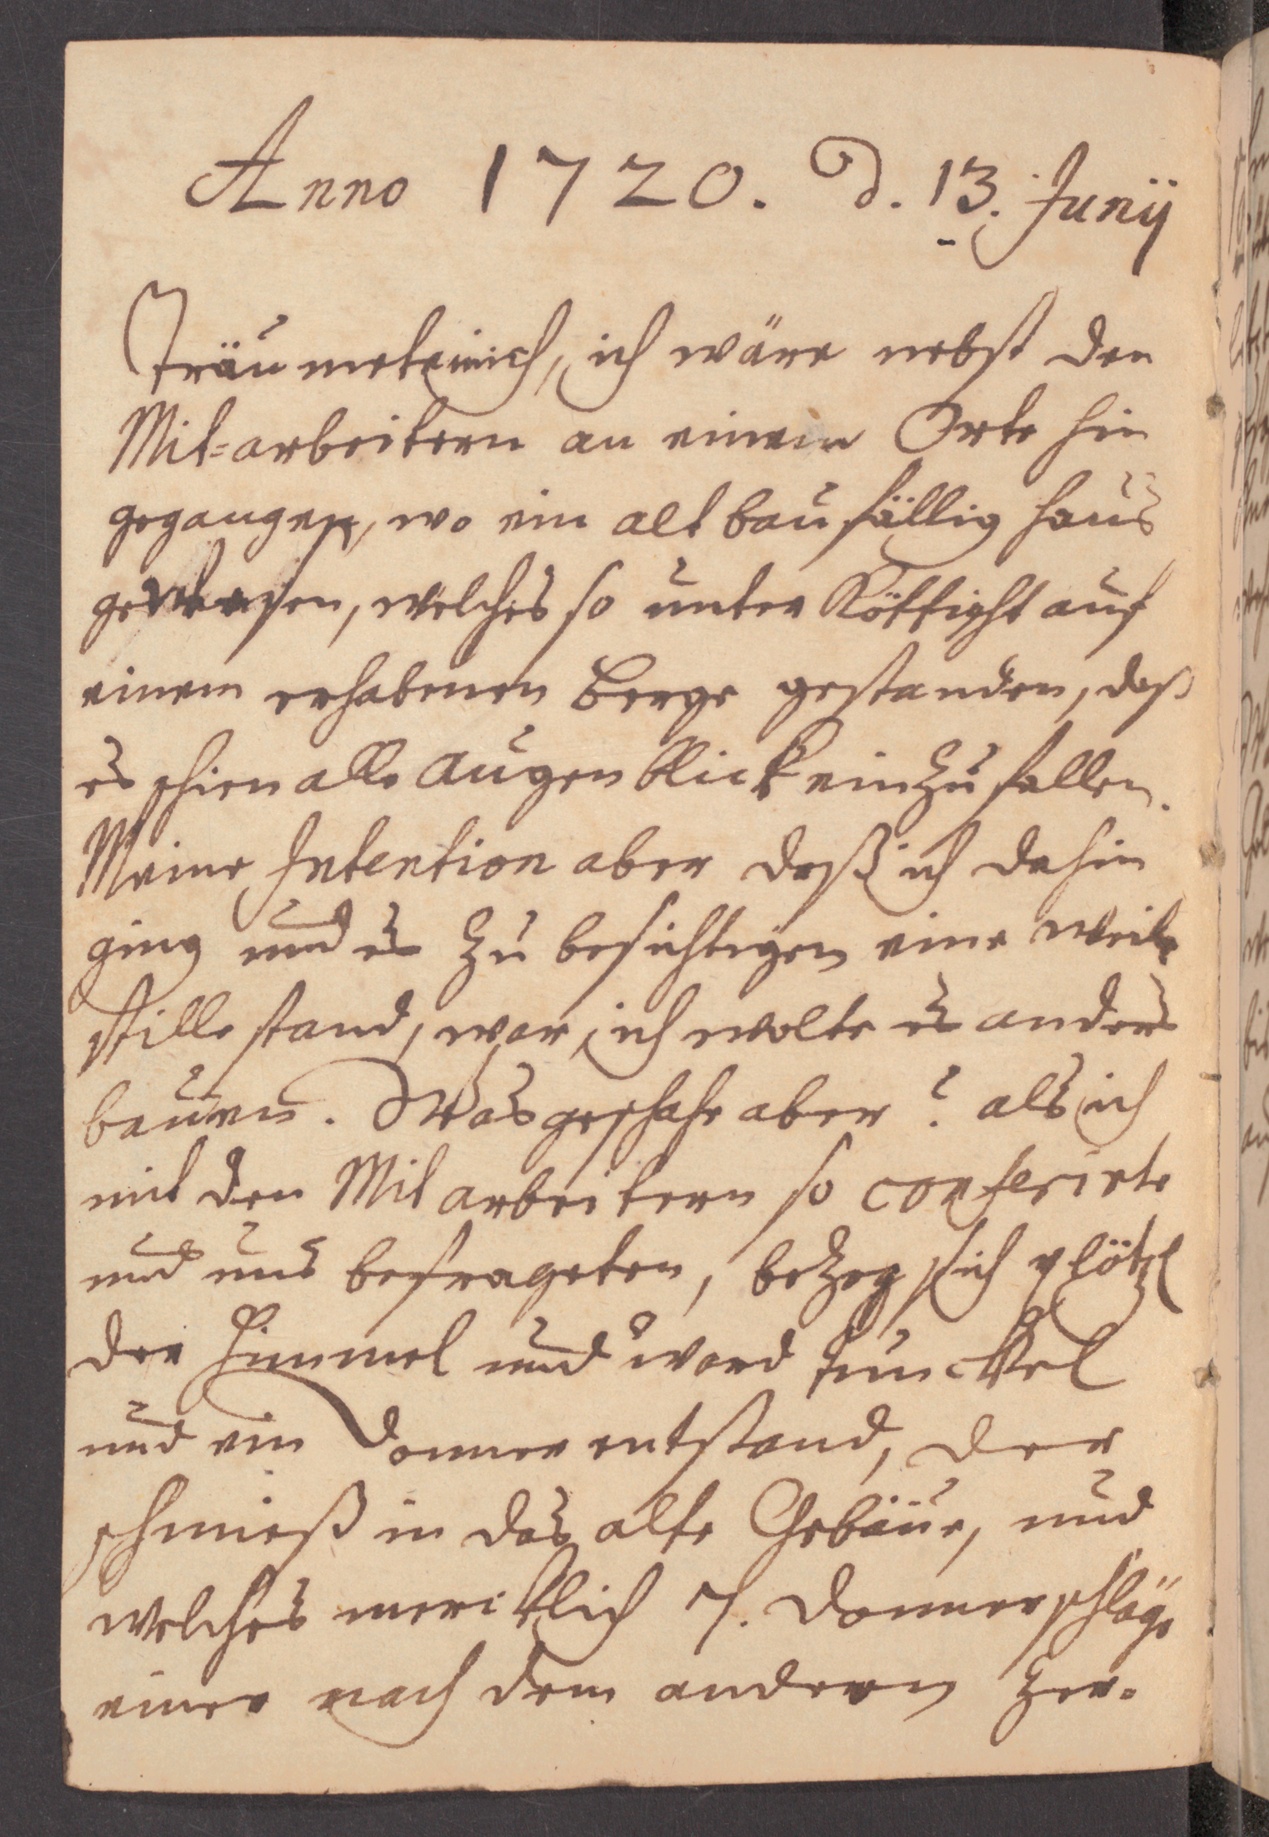 Anno 1720. d. 13. Junij
Träumete mich, ich wäre nebst den
Mit=arbeitern an einem Orte hin
gegangen, wo ein alt baufällig Haus
gewesen, welches so unter Köttigst auf
einem erhabenen Berge gestanden, daß
es schien alle Augenblick einzufallen.
Meine Intention aber daß ich dahin
ging und es zu besichtigen eine weile
stille stand, war, ich wolte es anders
bauen. Was geschahe aber? als ich
mit den Mitarbeitern so conferirte
und uns befrageten, bezog sich plötzl
der Himmel und ward tunckel
und ein Donner entstand, der
schmieß in das alte Gebäue, und
welches mercklich 7. Donnerschläge
einer nach dem anderen zer=